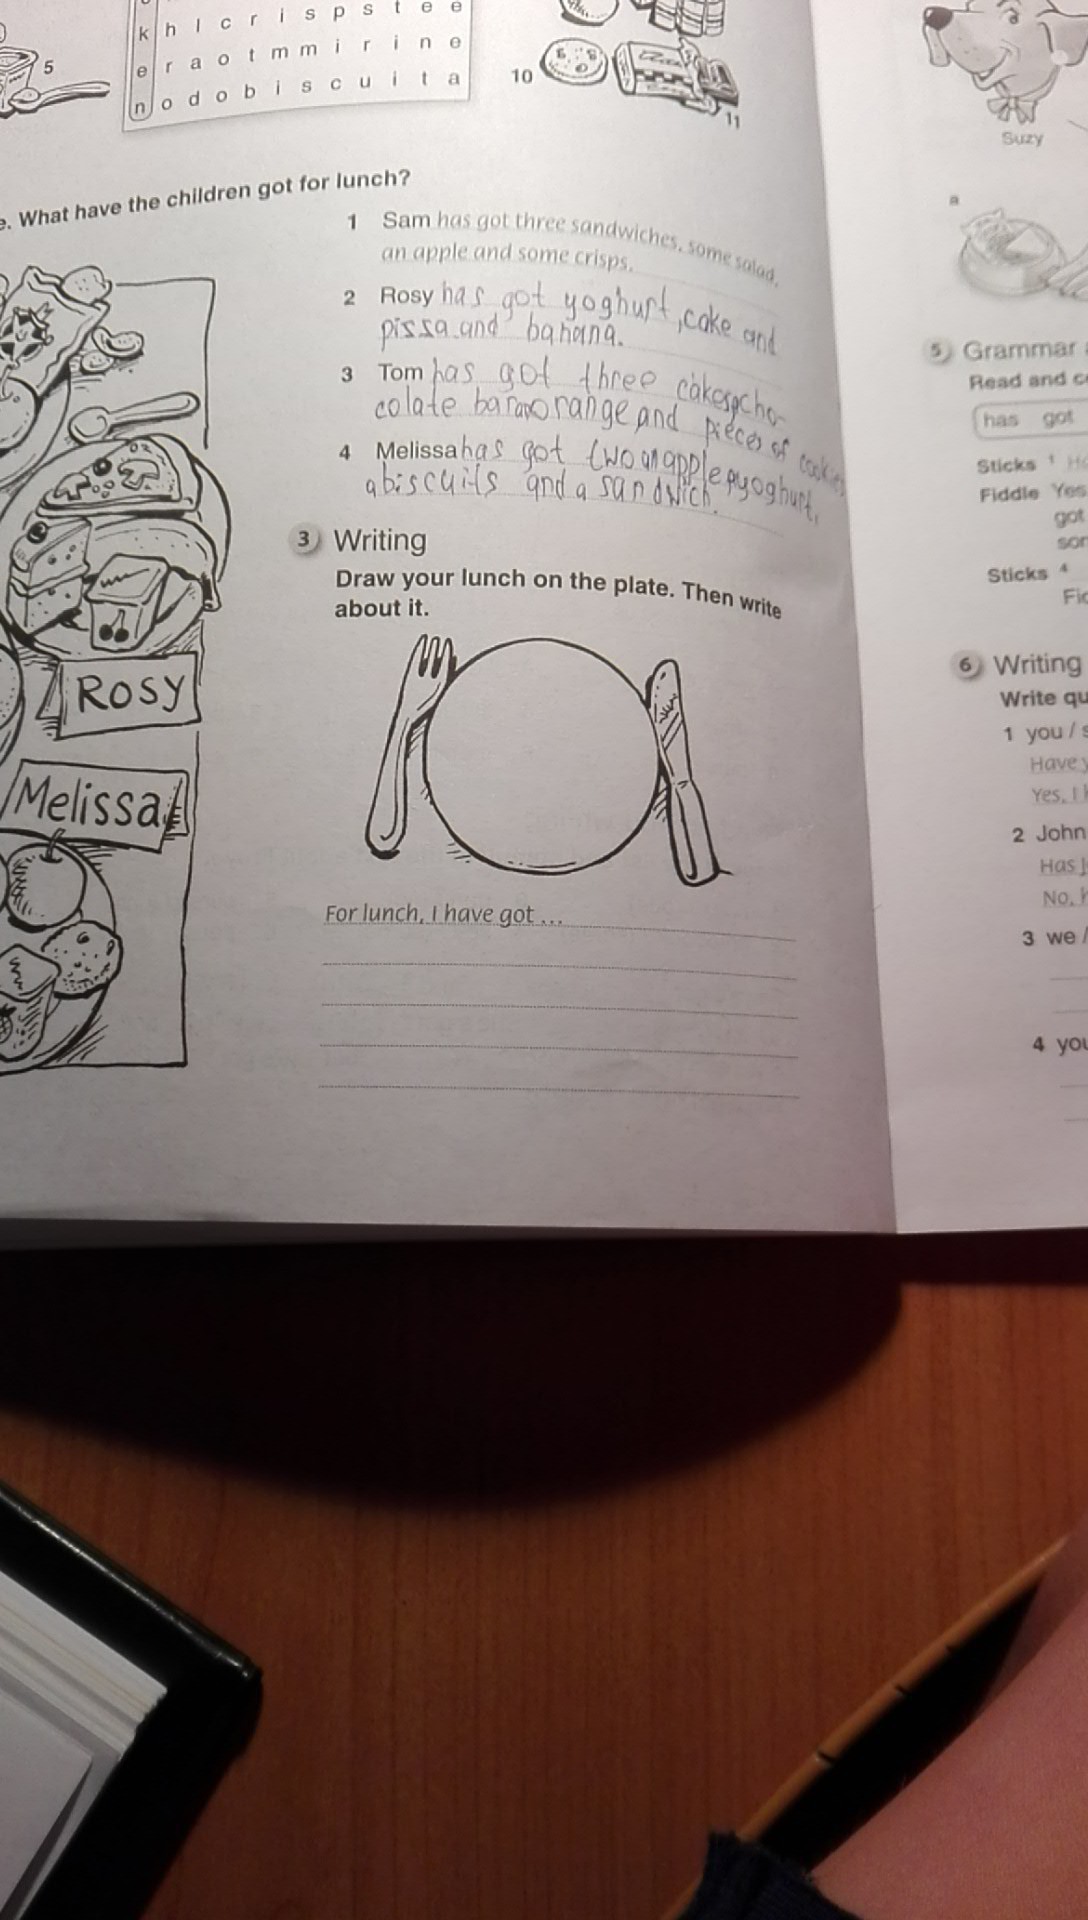 k h l c r i s p s t e e
e r a o t m m i r i n e
n o d o b i s c u i t a
5
10
11
Suzy
e. What have the children got for lunch?
1 Sam has got three sandwiches, some salad,
an apple and some crisps.
2 Rosy has got yoghurt, cake and
pissa and banana.
3 Tom has got three cakes, a cho-
colate bar an orange and pieces of cookies
4 Melissa has got two an apple, a yoghurt,
a biscuits and a sandwich.
ROSY
Melissa
3 Writing
Draw your lunch on the plate. Then write
about it.
For lunch, I have got ...
a
5 Grammar
Read and c
has got
Sticks 1 H
Fiddle Yes
got
sor
Sticks 4
Fic
6 Writing
Write qu
1 you / s
Have y
Yes, I h
2 John
Has J
No, h
3 we /
4 you